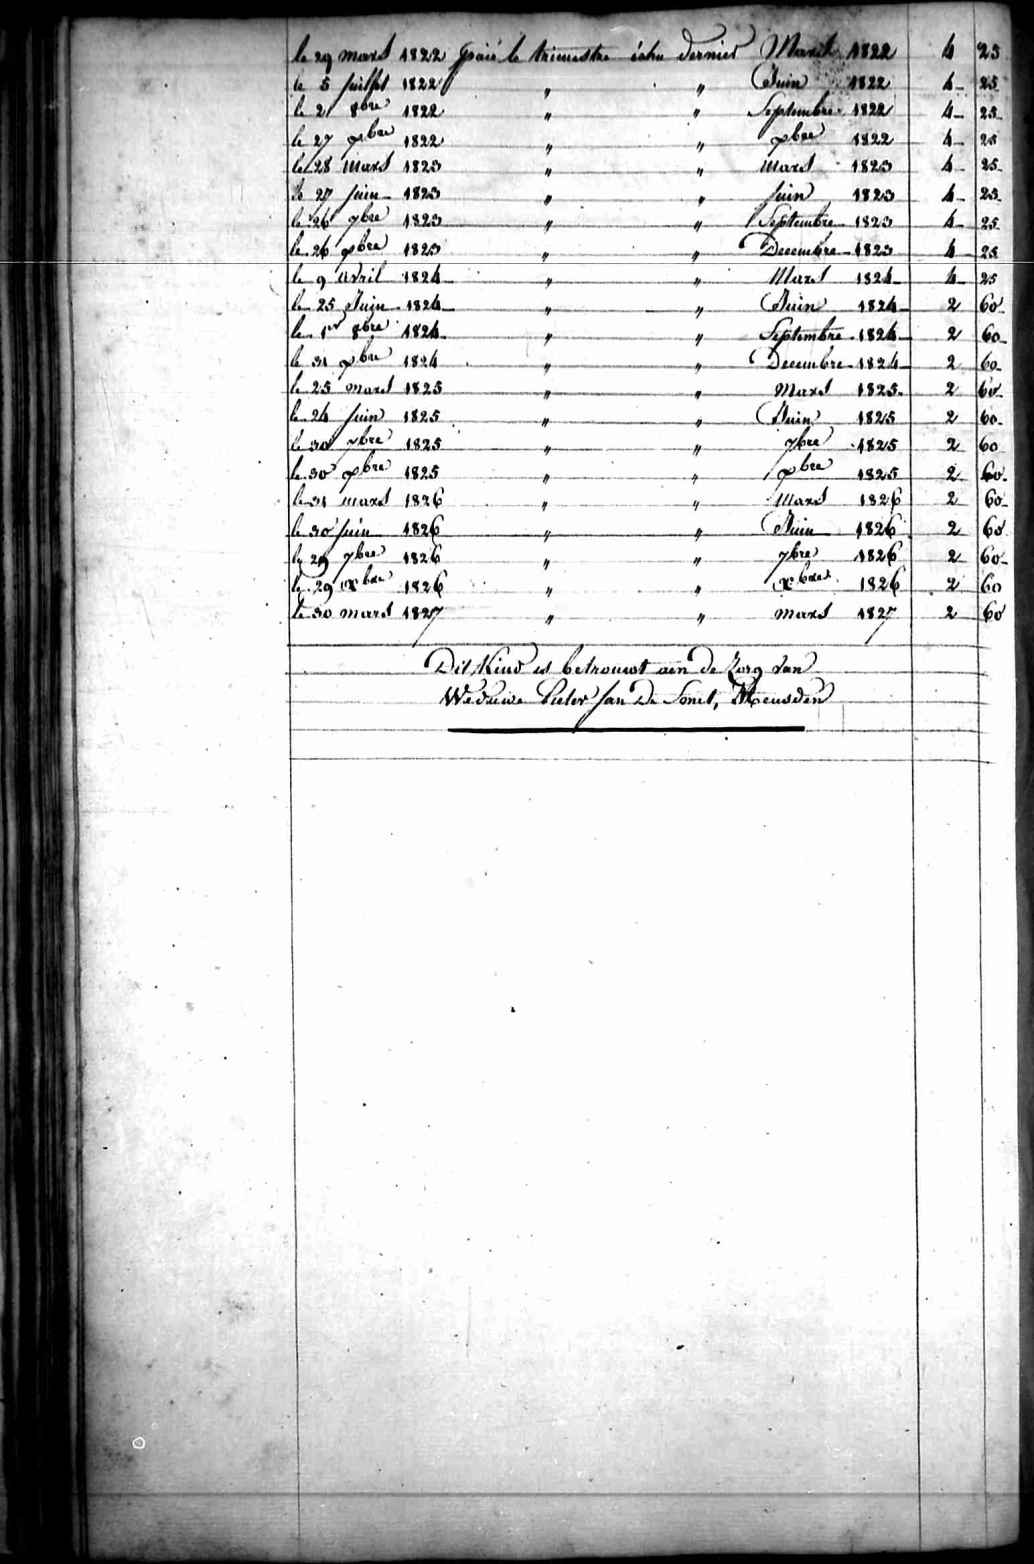 le 29 mars 1822 paié le trimestre échu dernier Mars 1822 4 25
le 5 juillet 1822 " " Juin 1822 4 25
le 2 8bre 1822 " " Septembre 1822 4 25
le 27 xbre 1822 " " xbre 1822 4 25
le 28 mars 1823 " " mars 1823 4 25
le 27 juin 1823 " " juin 1823 4 25
le 26 7bre 1823 " " Septembre 1823 4 25
le 26 xbre 1823 " " Decembre 1823 4 25
le 9 avril 1824 " " Mars 1824 4 25
le 25 Juin 1824 " " Juin 1824 2 60
le 1er 8bre 1824 " " Septembre 1824 2 60
le 31 xbre 1824 " " Decembre 1824 2 60
le 25 mars 1825 " " Mars 1825 2 60
le 24 juin 1825 " " Juin 1825 2 60
le 30 7bre 1825 " " 7bre 1825 2 60
le 30 xbre 1825 " " xbre 1825 2 60
le 31 mars 1826 " " Mars 1826 2 60
le 30 juin 1826 " " Juin 1826 2 60
le 29 7bre 1826 " " 7bre 1826 2 60
le 29 xbre 1826 " " xbre 1826 2 60
le 30 mars 1827 " " mars 1827 2 60
Dit Kind is betrouwt aen de Zorg van
Weduwe Pieter Jan De Heusden